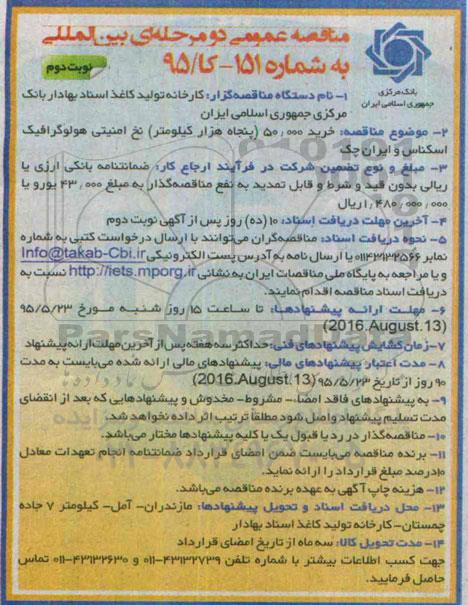 مناقصه عمومی دو مرحله‌ای بین‌المللی
به شماره ۱۵۱- کا/۹۵
نوبت دوم
بانک مرکزی
جمهوری اسلامی ایران
۱- نام دستگاه مناقصه‌گزار: کارخانه تولید کاغذ اسناد بهادار بانک
مرکزی جمهوری اسلامی ایران
۲- موضوع مناقصه: خرید ۵۰/۰۰۰ (پنجاه هزار کیلومتر) نخ امنیتی هولوگرافیک
اسکناس و ایران چک
۳- مبلغ و نوع تضمین شرکت در فرآیند ارجاع کار: ضمانتنامه بانکی ارزی یا
ریالی بدون قید و شرط و قابل تمدید به نفع مناقصه‌گذار به مبلغ ۴۳/۰۰۰ یورو یا
۱/۴۸۰/۰۰۰/۰۰۰ ریال
۴- آخرین مهلت دریافت اسناد: ۱۰ (ده) روز پس از آگهی نوبت دوم
۵- نحوه دریافت اسناد: مناقصه‌گران می‌توانند با ارسال درخواست کتبی به شماره
نمابر ۰۱۱۴۳۱۳۲۵۶۶ یا ارسال نامه به آدرس پست الکترونیکی Info@takab-Cbi.ir
و یا مراجعه به پایگاه ملی مناقصات ایران به نشانی http://iets.mporg.ir نسبت به
دریافت اسناد مناقصه اقدام نمایند.
۶- مهلت ارائه پیشنهادها: تا ساعت ۱۵ روز شنبه مورخ ۹۵/۵/۲۳
(2016.August.13)
۷- زمان گشایش پیشنهادهای فنی: حداکثر سه هفته پس از آخرین مهلت ارائه پیشنهاد
۸- مدت اعتبار پیشنهادهای مالی: پیشنهادهای مالی ارائه شده می‌بایست به مدت
۹۰ روز از تاریخ ۹۵/۵/۲۳ (2016.August.13)
۹- به پیشنهادهای فاقد امضا،- مشروط- مخدوش و پیشنهادهایی که بعد از انقضای
مدت تسلیم پیشنهاد واصل شود مطلقا ترتیب اثر داده نخواهد شد.
۱۰- مناقصه‌گذار در رد یا قبول یک یا کلیه پیشنهادها مختار می‌باشد.
۱۱- برنده مناقصه می‌بایست ضمن امضای قرارداد ضمانتنامه انجام تعهدات معادل
۱۰درصد مبلغ قرارداد را ارائه نماید.
۱۲- هزینه چاپ آگهی به عهده برنده مناقصه می‌باشد.
۱۳- محل دریافت اسناد و تحویل پیشنهادها: مازندران- آمل- کیلومتر ۷ جاده
چمستان- کارخانه تولید کاغذ اسناد بهادار
۱۴- مدت تحویل کالا: سه ماه از تاریخ امضای قرارداد
جهت کسب اطلاعات بیشتر با شماره تلفن ۴۳۱۳۲۷۳۹-۰۱۱ و ۴۳۱۳۲۶۳۰-۰۱۱ تماس
حاصل فرمایید.